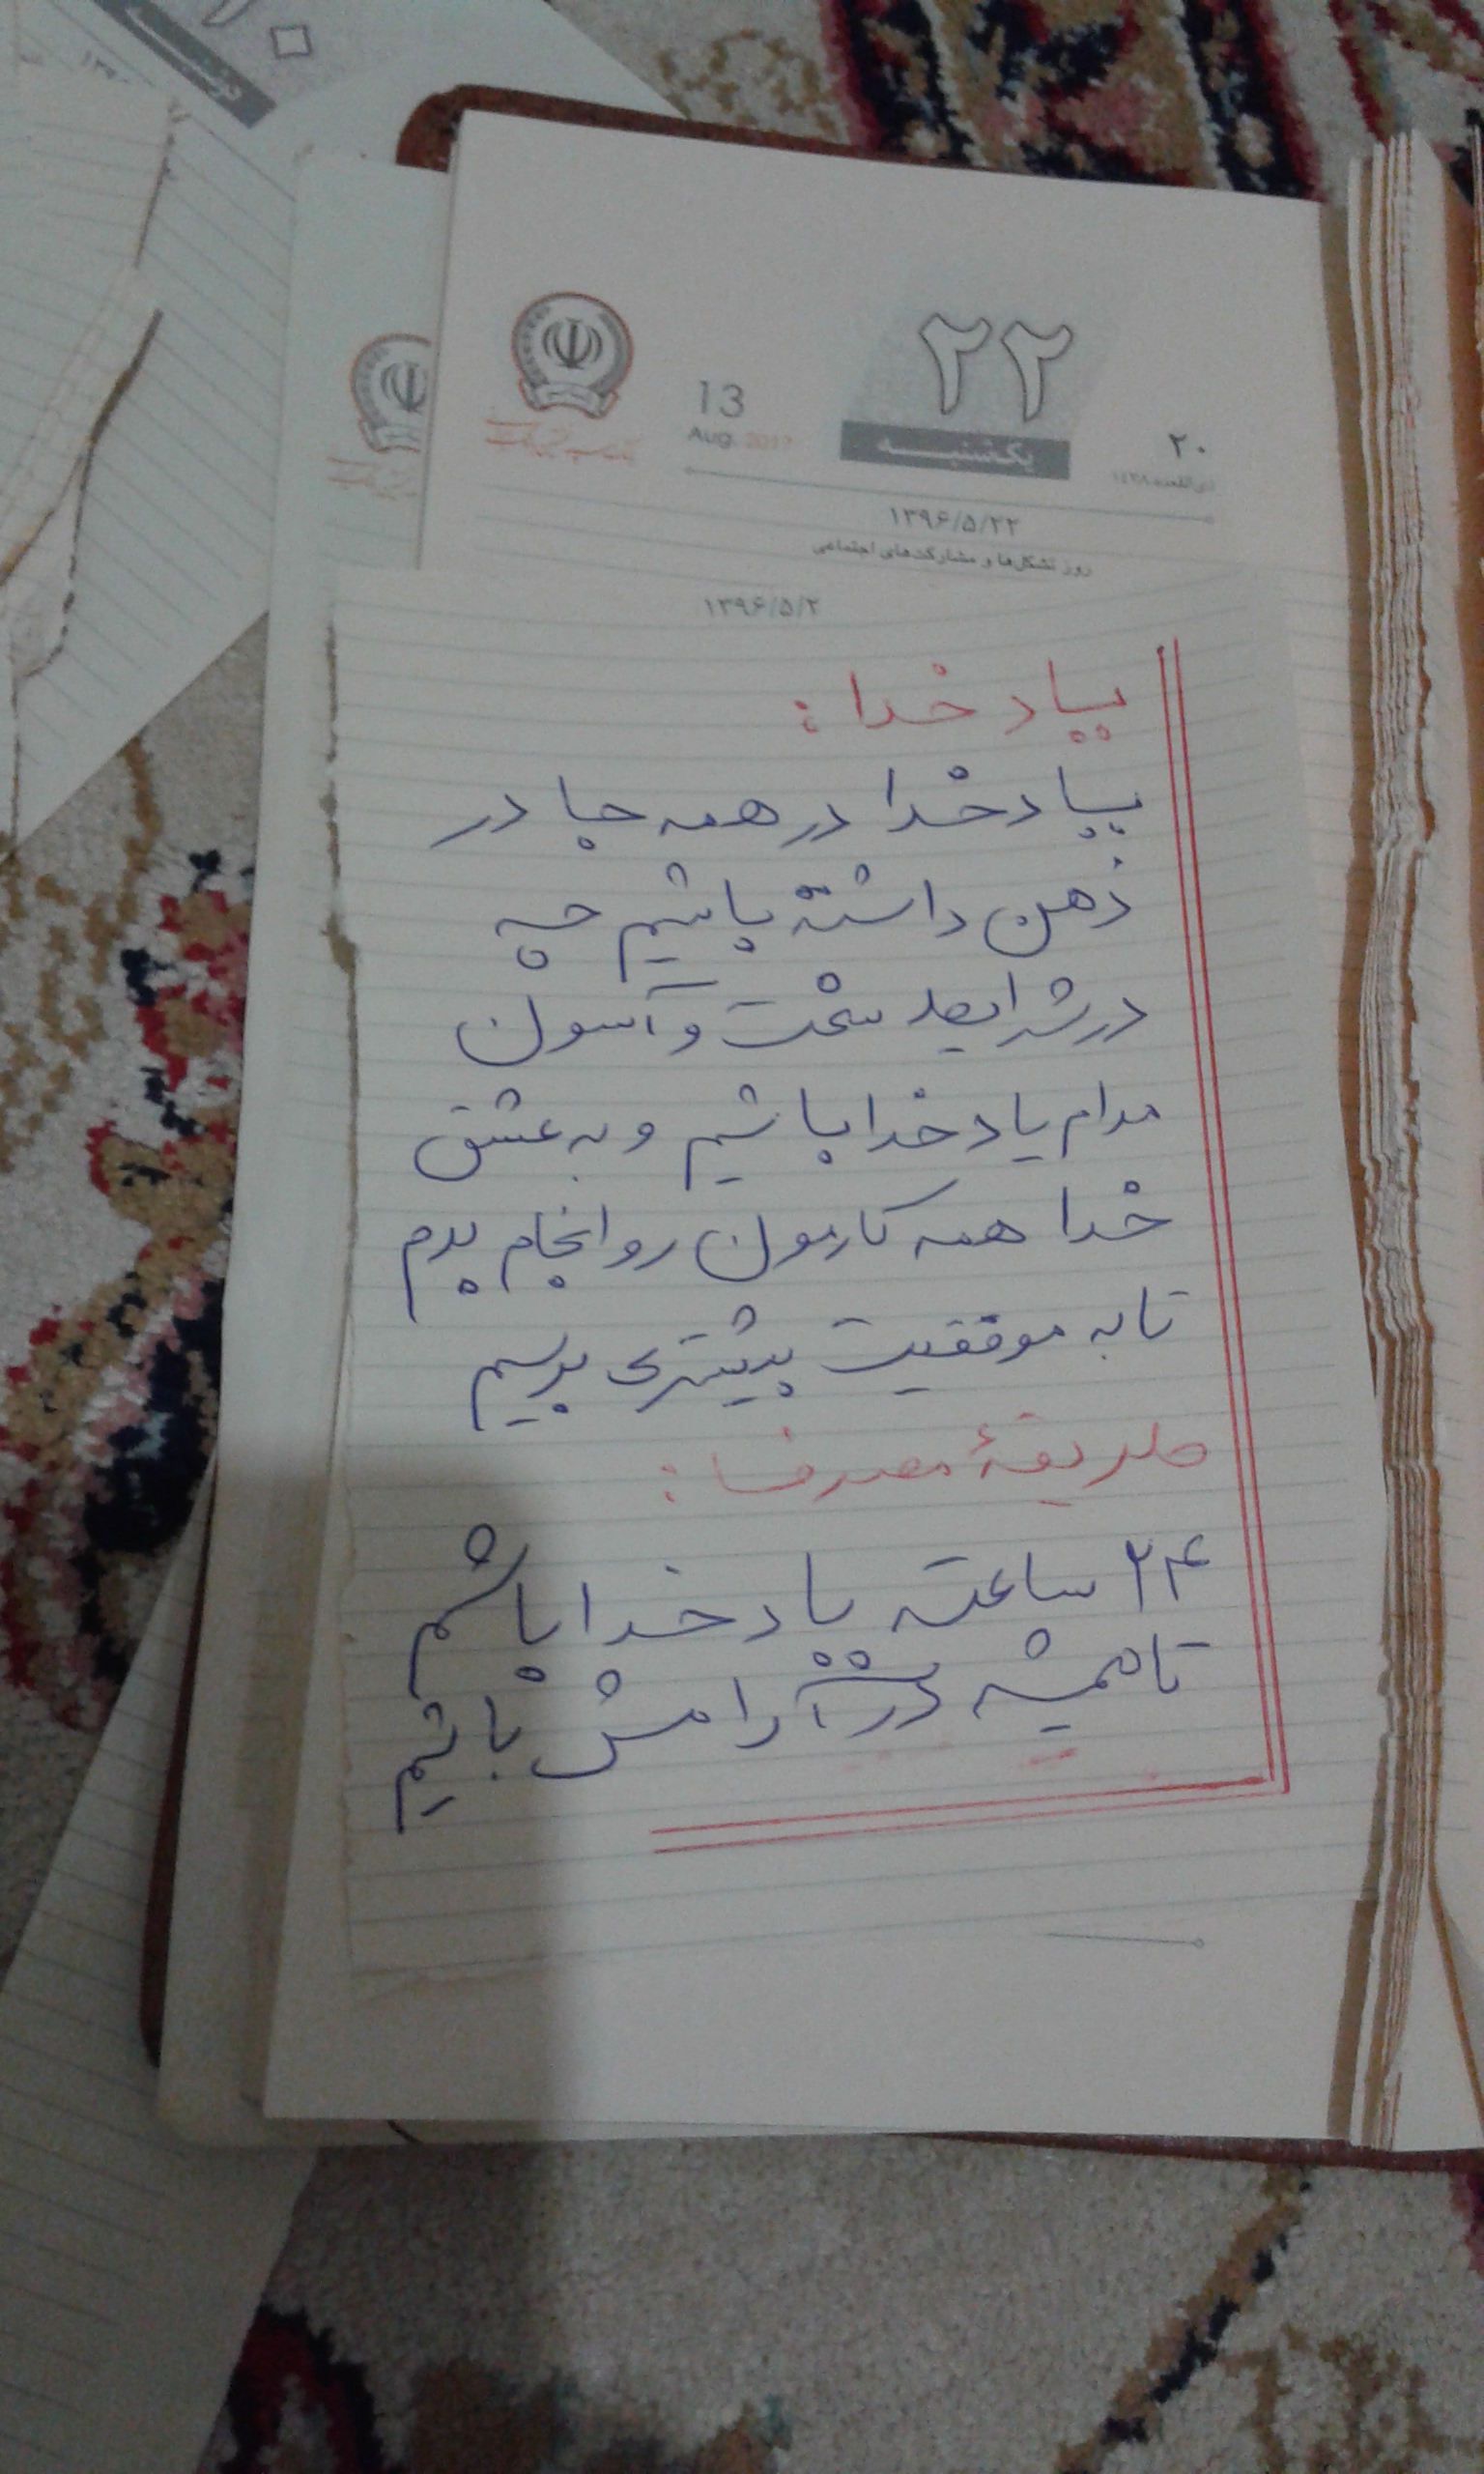 ۲۲
یکشنبه
13
Aug. 2017
۲۰
ذی‌القعده ۱۴۳۸
۱۳۹۶/۵/۲۲
روز تشکل‌ها و مشارکت‌های اجتماعی
۱۳۹۶/۵/۲
بیاد خدا :
بیاد خدا در همه جا در
ذهن داشته باشیم چه
در شرایط سخت و آسون
مدام یاد خدا باشیم و به عشق
خدا همه کارمون رو انجام بدم
تا به موفقیت بیشتری برسیم
طریقهٔ مصرف :
۲۴ ساعته یاد خدا باشم
تا همیشه در آرامش باشیم